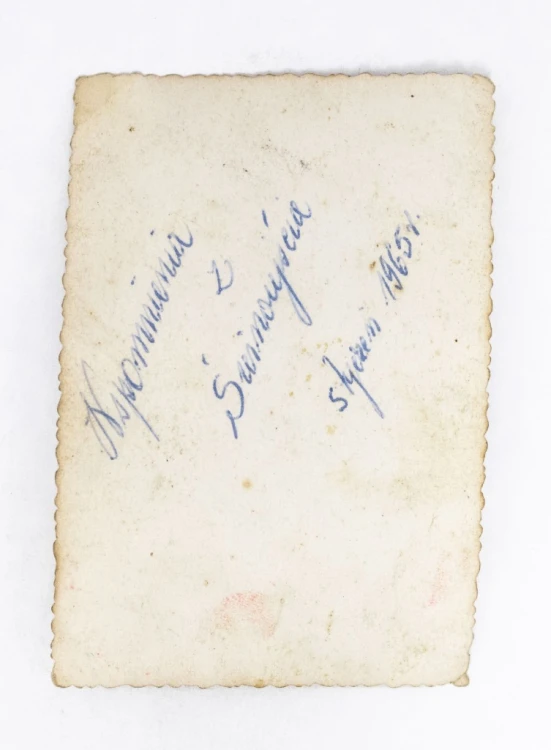 Wspomnienia
z
Świnoujścia
styczeń 1965 r.